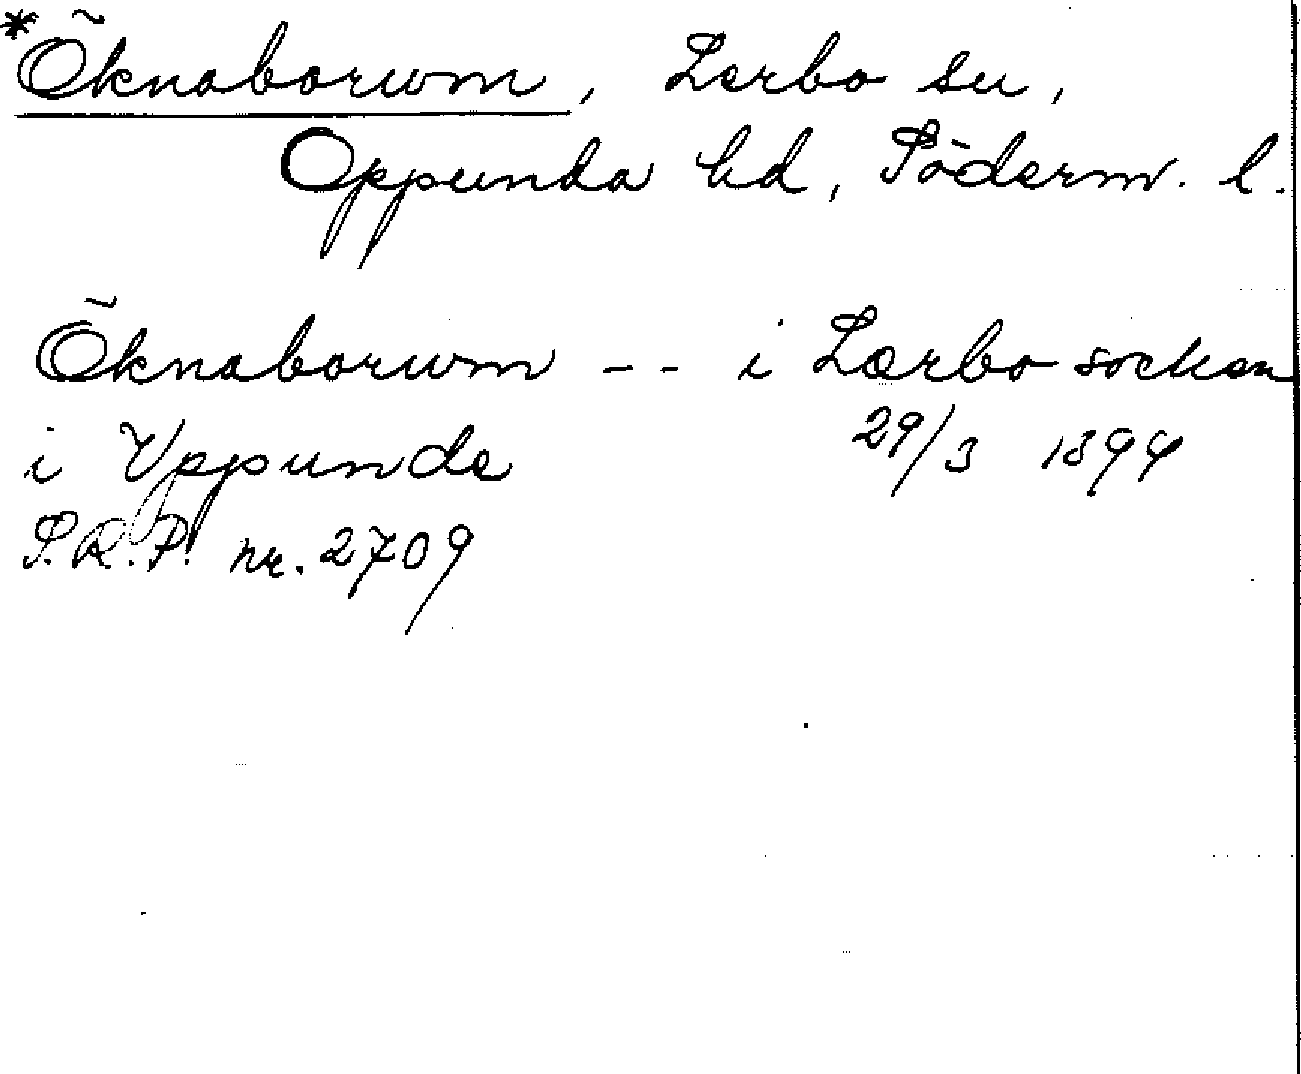 *Öknaborum, Lerbo sn,
Oppunda hd, Söderm. l.
Öknaborum -- i Lærbo socken
i Vppunde 29/3 1394
S.R.P. nr. 2709